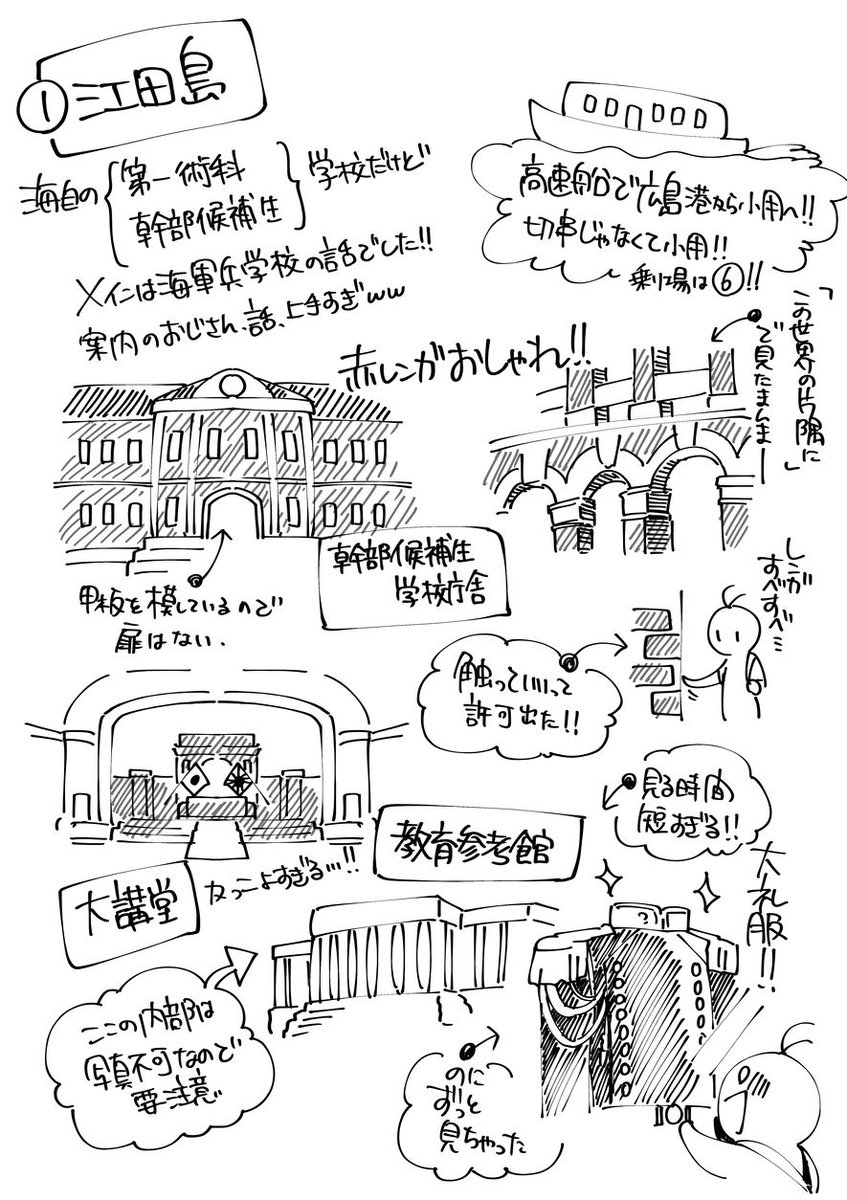 ① 江田島
海自の
第一術科
幹部候補生
学校だけど
メインは海軍兵学校の話でした!!
案内のおじさん、話、上手すぎww
高速船で広島港から小用へ!!
切串じゃなくて小用!!
乗り場は⑥!!
赤レンガおしゃれ!!
「この世界の片隅に」
で見たまんまー
甲板を模しているので
扉はない.
幹部候補生
学校庁舎
レンガ
すべすべ…
触っていいって
許可出た!!
大講堂
かっこよすぎる…!!
教育参考館
見る時間
短すぎる!!
大礼服!!
ここの内部は
写真不可なので
要注意
のに
ずっと
見ちゃった